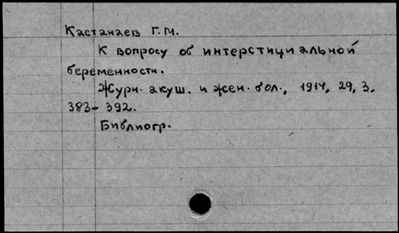 Кастанаев Г.М.
К вопросу об интерстициальной
беременности.
Журн. акуш. и жен. бол., 1914, 29, 3,
383-392.
Библиогр.